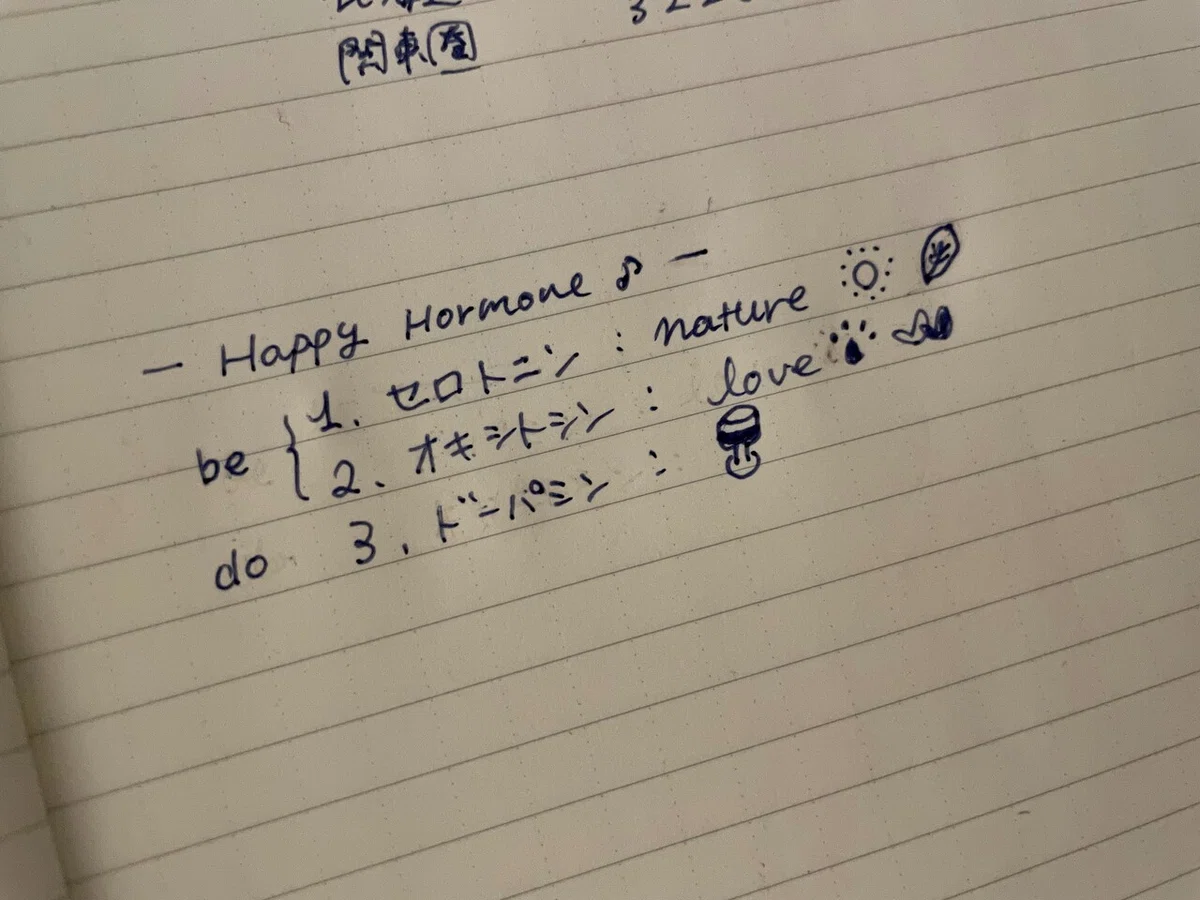 関東圏
— Happy Hormone ♪ —
be { 1. セロトニン : nature
2. オキシトシン : love
do 3. ドーパミン :